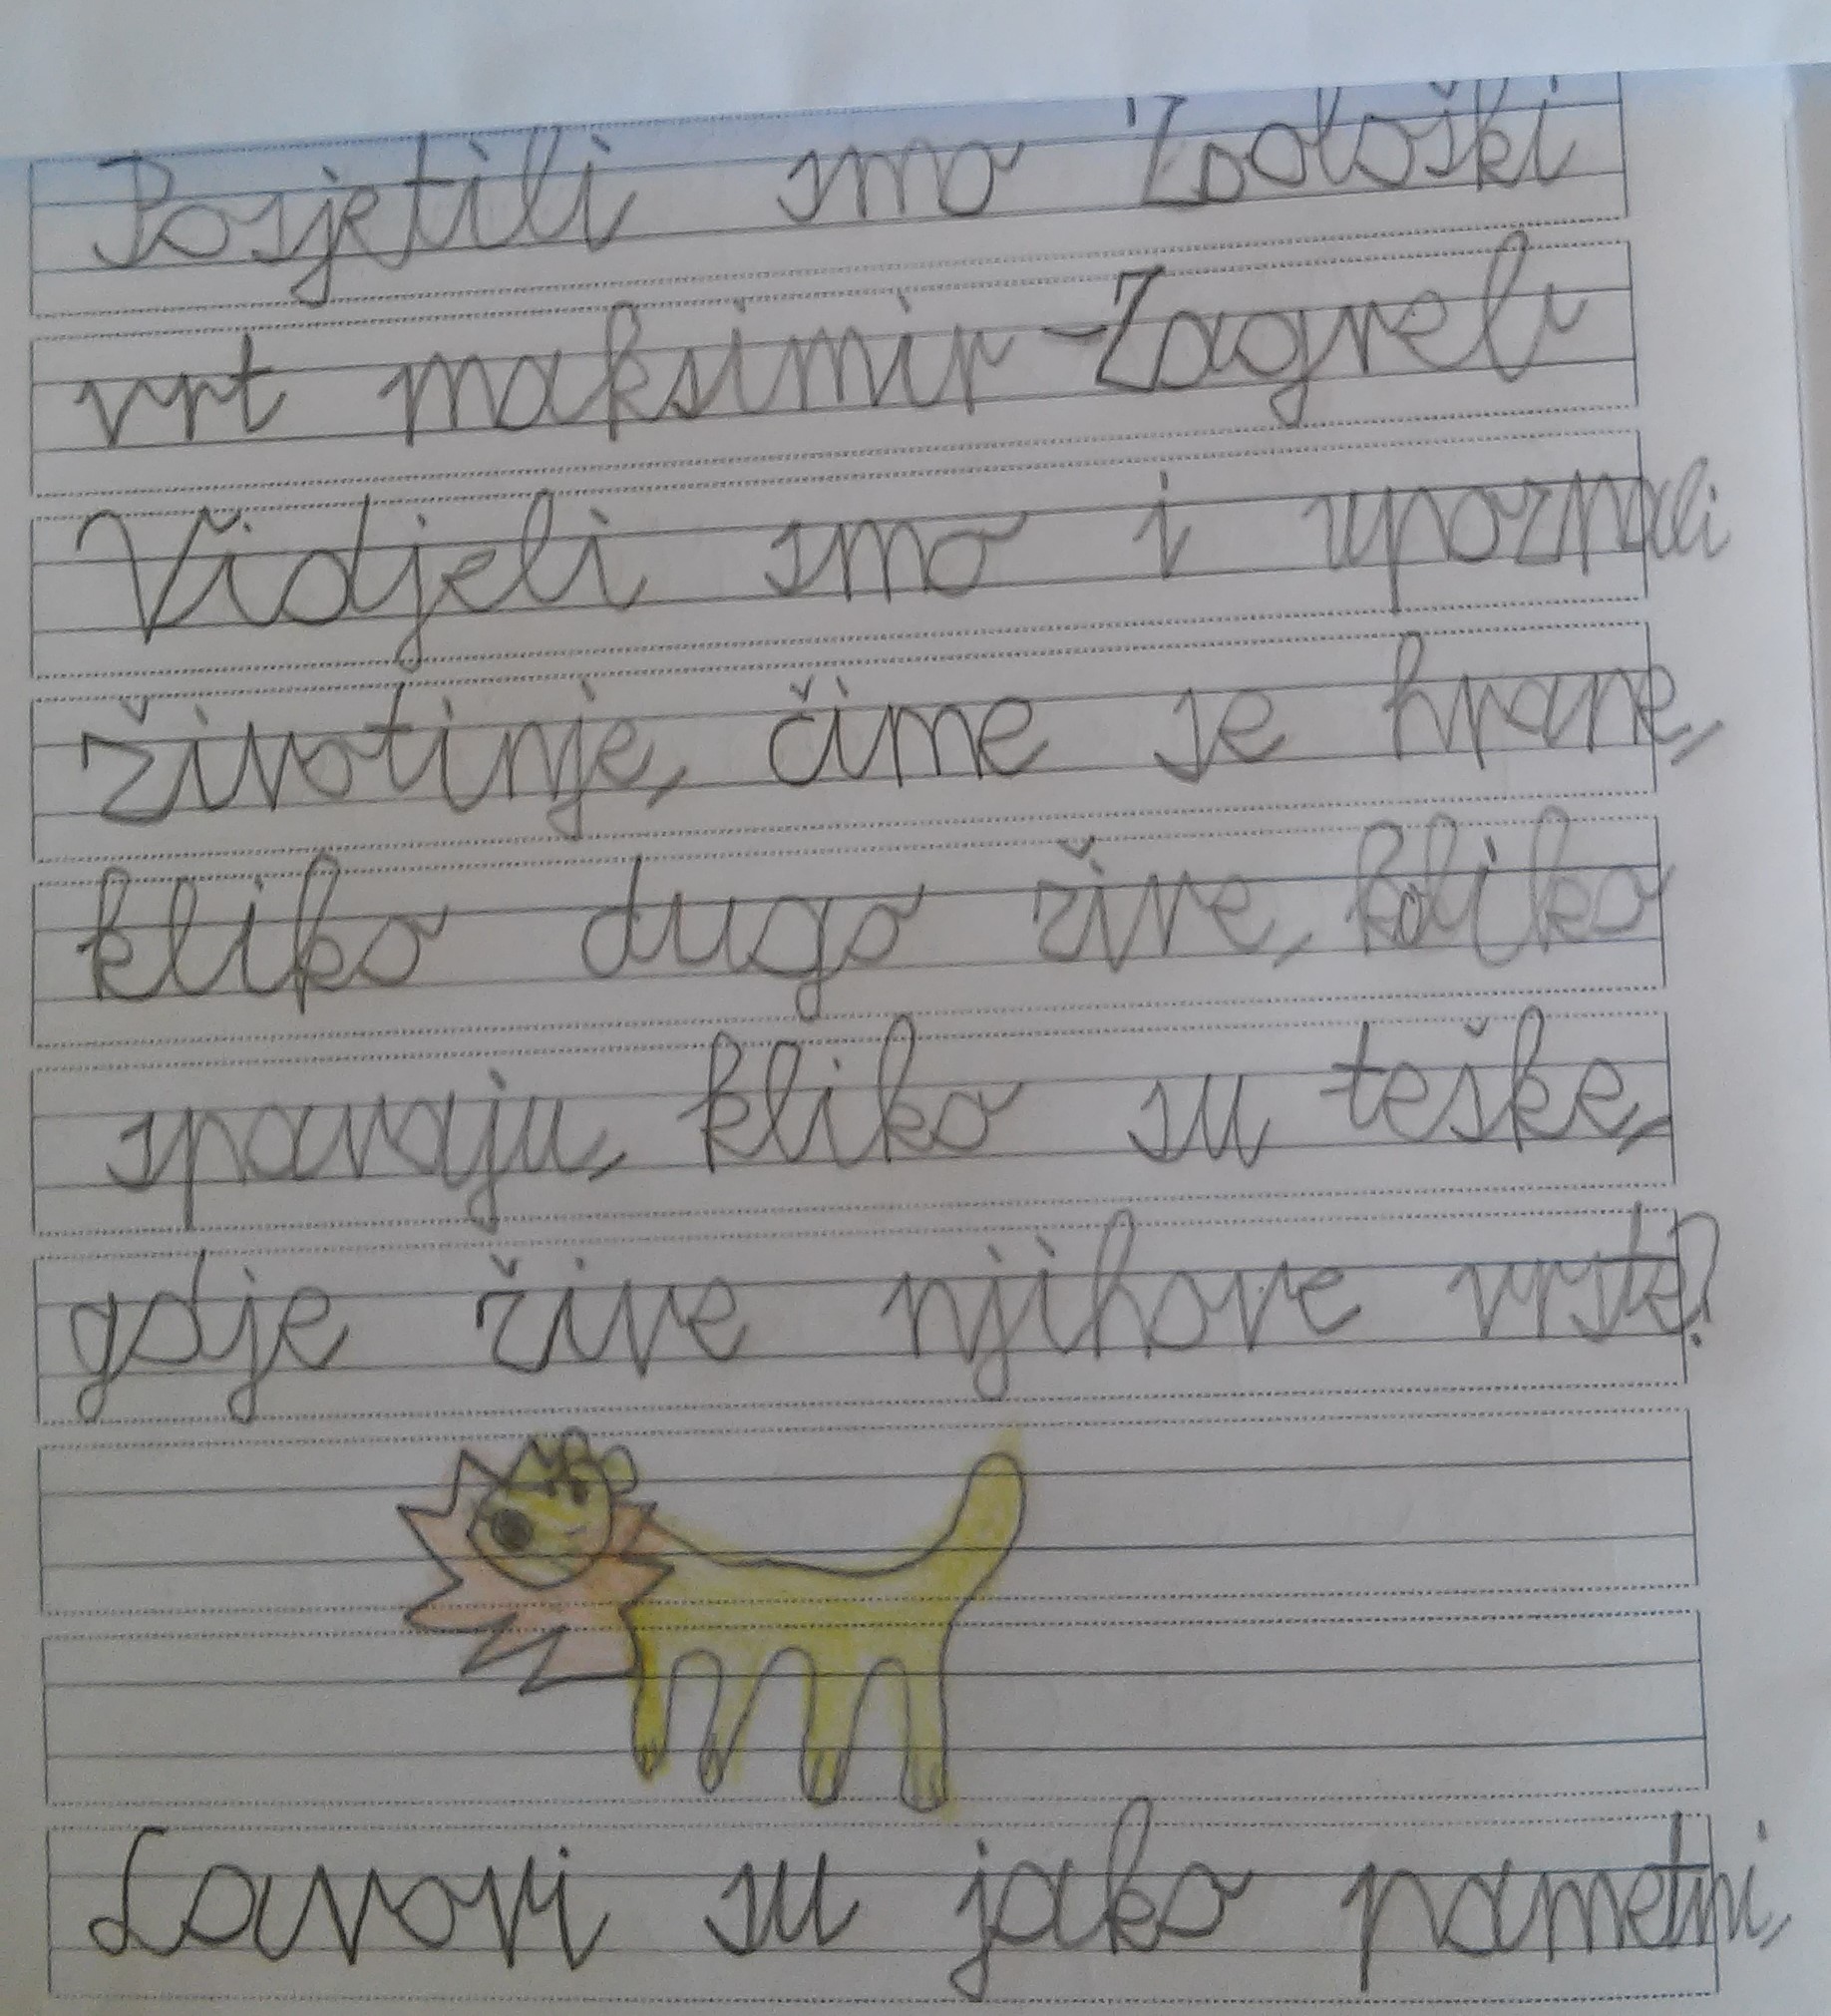 Posjetili smo Zoološki
vrt maksimir-Zagreb
Vidjeli smo i upoznali
životinje, čime se hrane,
kliko dugo žive, koliko
spavaju, kliko su teške,
gdje žive njihove vrste?
Lavovi su jako pametni,